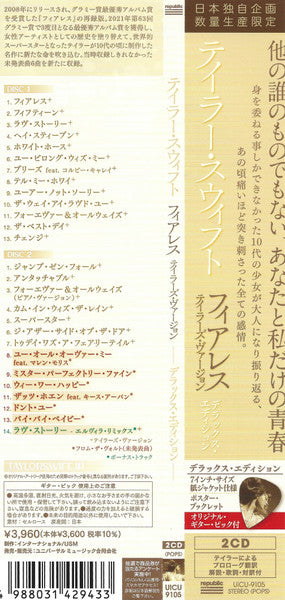 2008年にリリースされ、グラミー賞最優秀アルバム賞
を受賞した『フィアレス』の再録版。2021年第63回
グラミー賞で3度目となる最優秀アルバム賞を獲得し、
女性アーティストとしての歴史を塗り替えて、世界的
スーパースターとなったテイラーが10代の頃に制作し
た名作に新たな命を吹き込む。当時収録されなかった
未発表曲6曲を新たに収録。
DISC 1
1. フィアレス+
2. フィフティーン+
3. ラヴ・ストーリー+
4. ヘイ・スティーブン+
5. ホワイト・ホース+
6. ユー・ビロング・ウィズ・ミー+
7. ブリーズ feat. コルビー・キャレイ+
8. テル・ミー・ホワイ+
9. ユーアー・ノット・ソーリー+
10. ザ・ウェイ・アイ・ラヴド・ユー+
11. フォーエヴァー&オールウェイズ+
12. ザ・ベスト・デイ+
13. チェンジ+
DISC 2
1. ジャンプ・ゼン・フォール+
2. アンタッチャブル+
3. フォーエヴァー&オールウェイズ
(ピアノ・ヴァージョン)+
4. カム・イン・ウィズ・ザ・レイン+
5. スーパースター+
6. ジ・アザー・サイド・オブ・ザ・ドア+
7. トゥデイ・ワズ・ア・フェアリーテイル+
8. ユー・オール・オーヴァー・ミー
feat. マレン・モリス*
9. ミスター・パーフェクトリー・ファイン*
10. ウィー・ワー・ハッピー*
11. ザッツ・ホエン feat. キース・アーバン*
12. ドント・ユー*
13. バイ・バイ・ベイビー*
14. ラヴ・ストーリー - エルヴィラ・リミックス+
+テイラーズ・ヴァージョン
*フロム・ザ・ヴォルト(未発表曲)
ボーナス・トラック
TAYLOR SWIFT
ギター・ピック 使用上のご注意
¥3,960(本体¥3,600 税率10%)
制作:インターナショナル/USM
発売・販売元:ユニバーサル ミュージック合同会社
4 988031 429433
テイラー・スウィフト
フィアレス
テイラーズ・ヴァージョン
デラックス・エディション
2CD
(POPS)
UICU
9105
republic
日本独自企画
数量生産限定
他の誰のものでもない、あなたと私だけの青春
身を委ねる事しかできなかった10代の少女が大人になり振り返る、
あの頃痛いほど突き刺さった全ての感情。
テイラー・スウィフト
フィアレス
テイラーズ・ヴァージョン
デラックス・エディション
デラックス・エディション
7インチ・サイズ
紙ジャケット仕様
ポスター・
ブックレット
オリジナル・
ギター・ピック付
2CD
テイラーによる
プロローグ翻訳
解説・歌詞・対訳付
republic
UICU-9105
STEREO (POPS)